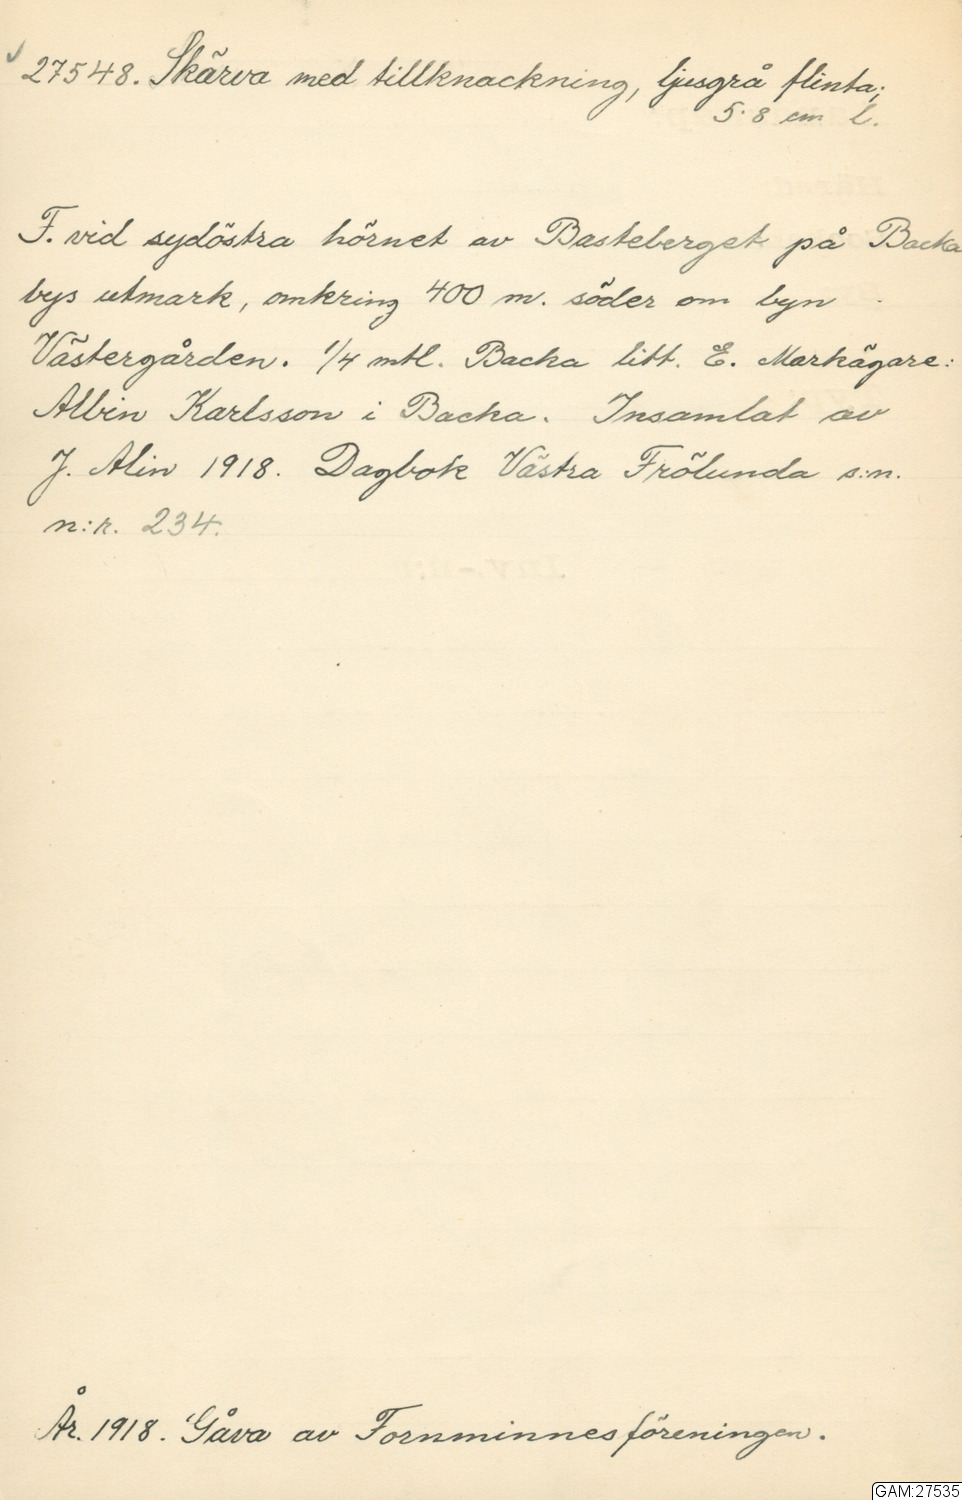 27548. Skärva med tillknackning, ljusgrå flinta;
5.8 cm l.
F. vid sydöstra hörnet av Basteberget på Backa
bys utmark, omkring 400 m. söder om byn
Västergården. 1/4 mtl. Backa litt. E. Markägare:
Albin Karlsson i Backa. Insamlat av
J. Alin 1918. Dagbok Västra Frölunda s:n.
n:r. 234.
År. 1918. Gåva av Fornminnesföreningen.
GAM:27535